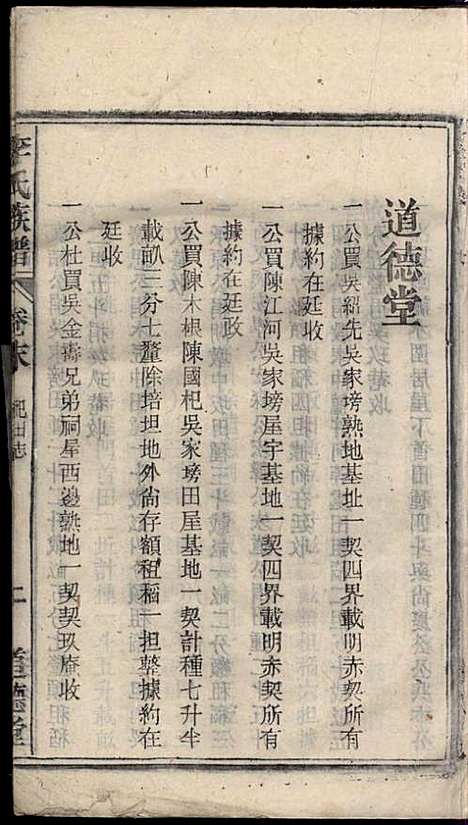 道德堂
一公買吳紹先吳家塝熟地基址一契四界載明赤契所有
據約在廷收
一公買陳江河吳家塝屋宇基地一契四界載明赤契所有
據約在廷政
一公買陳木根陳國杞吳家塝田屋基地一契計種七升半
載畝三分七釐除培坦地外尚存額租稲一担整據約在
廷收
一公杜買吳金壽兄弟祠屋西邊熟地一契契玖庵收
李氏族譜 卷末 祀田志 二 道德堂